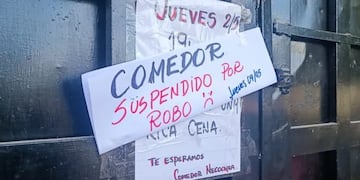 JUEVES 2/5
19:
COMEDOR
SUSPENDIDO POR
ROBO
JUEVES 09/05
RICA CENA.
TE ESPERAMOS
COMEDOR NECOCHEA